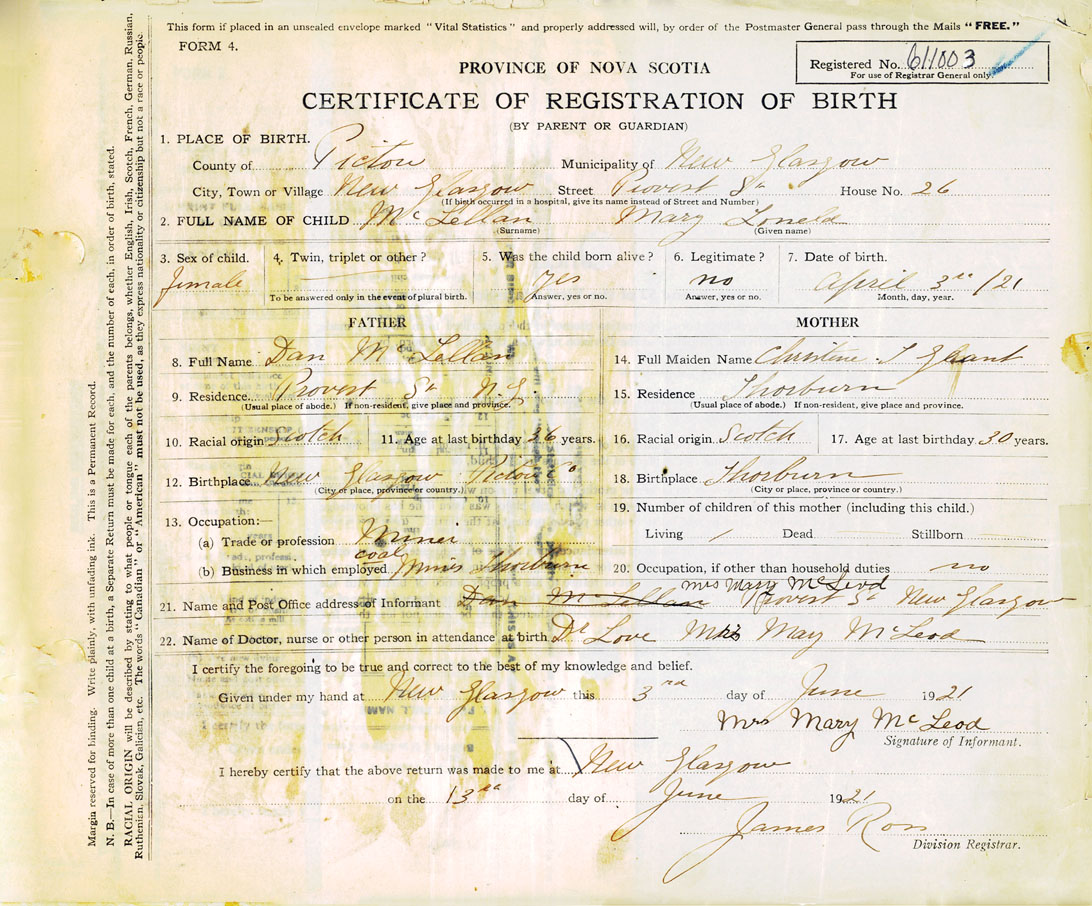 This form if placed in an unsealed envelope marked "Vital Statistics" and properly addressed will, by order of the Postmaster General pass through the Mails "FREE."
FORM 4.
Registered No. 611003
For use of Registrar General only.
PROVINCE OF NOVA SCOTIA
CERTIFICATE OF REGISTRATION OF BIRTH
(BY PARENT OR GUARDIAN)
1. PLACE OF BIRTH.
County of Pictou Municipality of New Glasgow
City, Town or Village New Glasgow Street Provost St House No. 26
(If birth occurred in a hospital, give its name instead of Street and Number)
2. FULL NAME OF CHILD McLellan Mary
(Surname) (Given name)
3. Sex of child. 4. Twin, triplet or other? 5. Was the child born alive? 6. Legitimate? 7. Date of birth.
female yes no April 3rd /21
To be answered only in the event of plural birth. Answer, yes or no. Answer, yes or no. Month, day, year.
FATHER MOTHER
8. Full Name Dan McLellan 14. Full Maiden Name Christine J Grant
9. Residence. Provost St N.G. 15. Residence Thorburn
(Usual place of abode.) If non-resident, give place and province. (Usual place of abode.) If non-resident, give place and province.
10. Racial origin Scotch 11. Age at last birthday 26 years. 16. Racial origin Scotch 17. Age at last birthday 30 years.
12. Birthplace New Glasgow Pictou Co 18. Birthplace Thorburn
(City or place, province or country.) (City or place, province or country.)
13. Occupation:— 19. Number of children of this mother (including this child.)
(a) Trade or profession Miner Living / Dead Stillborn
coal
(b) Business in which employed mines Thorburn 20. Occupation, if other than household duties no
Mrs Mary McLeod
21. Name and Post Office address of Informant Dan McLellan Provost St New Glasgow
22. Name of Doctor, nurse or other person in attendance at birth Dr Love Mrs May McLeod
I certify the foregoing to be true and correct to the best of my knowledge and belief.
Given under my hand at New Glasgow this 3rd day of June 1921
Mrs Mary McLeod
Signature of Informant.
I hereby certify that the above return was made to me at New Glasgow
on the 13th day of June 1921
James Ross
Division Registrar.
Margin reserved for binding. Write plainly, with unfading ink. This is a Permanent Record.
N. B.—In case of more than one child at a birth, a Separate Return must be made for each, and the number of each, in order of birth, stated.
RACIAL ORIGIN will be described by stating to what people or tongue each of the parents belongs, whether English, Irish, Scotch, French, German, Russian,
Ruthenian, Slovak, Galician, etc. The words "Canadian" or "American" must not be used, as they express nationality or citizenship but not a race or people.